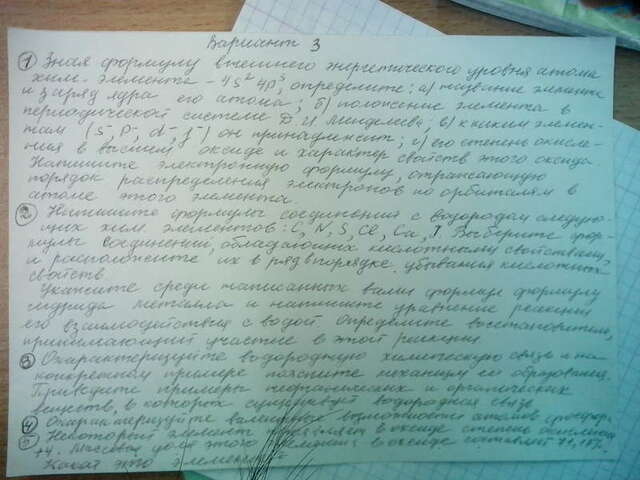 Вариант 3
① Зная формулу внешнего энергетического уровня атома
хим. элемента - 4s² 4p³, определите: а) название элемента
и заряд ядра его атома; б) положение элемента в
периодической системе Д.И. Менделеева; в) к каким элемен-
там (s-, p-, d-, f-) он принадлежит; г) его степень окисле-
ния в высшем оксиде и характер свойств этого оксида.
Напишите электронную формулу, отражающую
порядок распределения электронов по орбиталям в
атоме этого элемента.
② Напишите формулы соединений с водородом следую-
щих хим. элементов: C, N, S, Cl, Ca, I. Выберите фор-
мулы соединений, обладающих кислотными свойствами,
и расположите их в ряд в порядке убывания кислотных
свойств.
Укажите среди написанных вами формул формулу
гидрида металла и напишите уравнение реакции
его взаимодействия с водой. Определите восстановитель,
принимающий участие в этой реакции.
③ Охарактеризуйте водородную химическую связь и на
конкретном примере поясните механизм её образования.
Приведите примеры неорганических и органических
веществ, в которых существует водородная связь.
④ Охарактеризуйте валентные возможности атомов фосфора.
⑤ Некоторый элемент проявляет в оксиде степень окисления
+4. Массовая доля этого элемента в оксиде составляет
Какой это элемент?